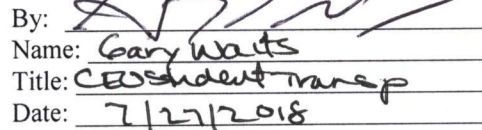 By:
Name: Gary Waits
Title: CEO Student Transp
Date: 7/27/2018